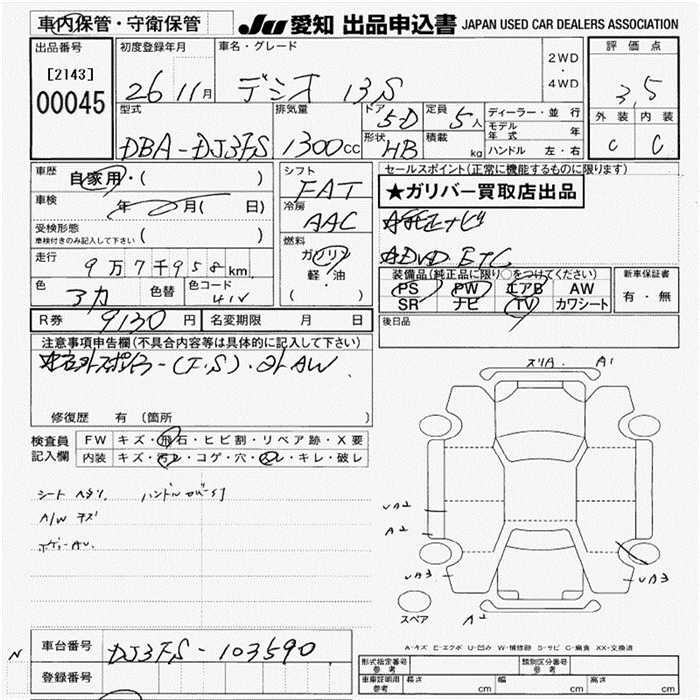 車内保管・守衛保管 JU 愛知 出品申込書 JAPAN USED CAR DEALERS ASSOCIATION
出品番号 初度登録年月 車名・グレード 2WD・4WD 評価点
[2143] 26 11月 デミオ 13S 3,5
00045
型式 排気量 ドア 5-D 定員 5人 ディーラー・並行 外装 内装
DBA-DJ3FS 1300cc 形状 HB 積載 kg モデル年式 年 C C
ハンドル 左・右
車歴 自家用・( ) シフト FAT セールスポイント(正常に機能するものに限ります)
車検 年 月( 日) 冷房 AAC ★ガリバー買取店出品
受検形態 ( )
車検付きのみ記入して下さい
燃料 ガソリン
軽・油
( )
走行 9万7千958km
装備品(純正品に限り○をつけてください) 新車保証書
色 色替 色コード 41V
PS PW エアB AW 有・無
SR ナビ TV カワシート
R券 9130円 名変期限 月 日 後日品
注意事項申告欄(不具合内容等は具体的に記入して下さい)
修復歴 有 (箇所 )
検査員記入欄 FW キズ・飛石・ヒビ割・リペア跡・X要
内装 キズ・汚レ・コゲ・穴・スレ・キレ・破レ
スリA. A1
シート ヘタリ. ハンドル
A/W キズ
UA2
A2
UA3 UA3
スペア A2
A-キズ E-エクボ U-凹み W-補修跡 S-サビ C-腐食 XX-交換済
N 車台番号 DJ3FS-103590
登録番号
形式指定番号 参考 類別区分番号 参考
車庫証明用 参考 長さ cm 幅 cm 高さ cm